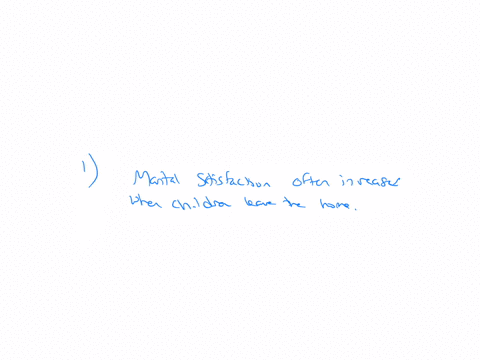 1) Marital Satisfaction often increases
when children leave the home.